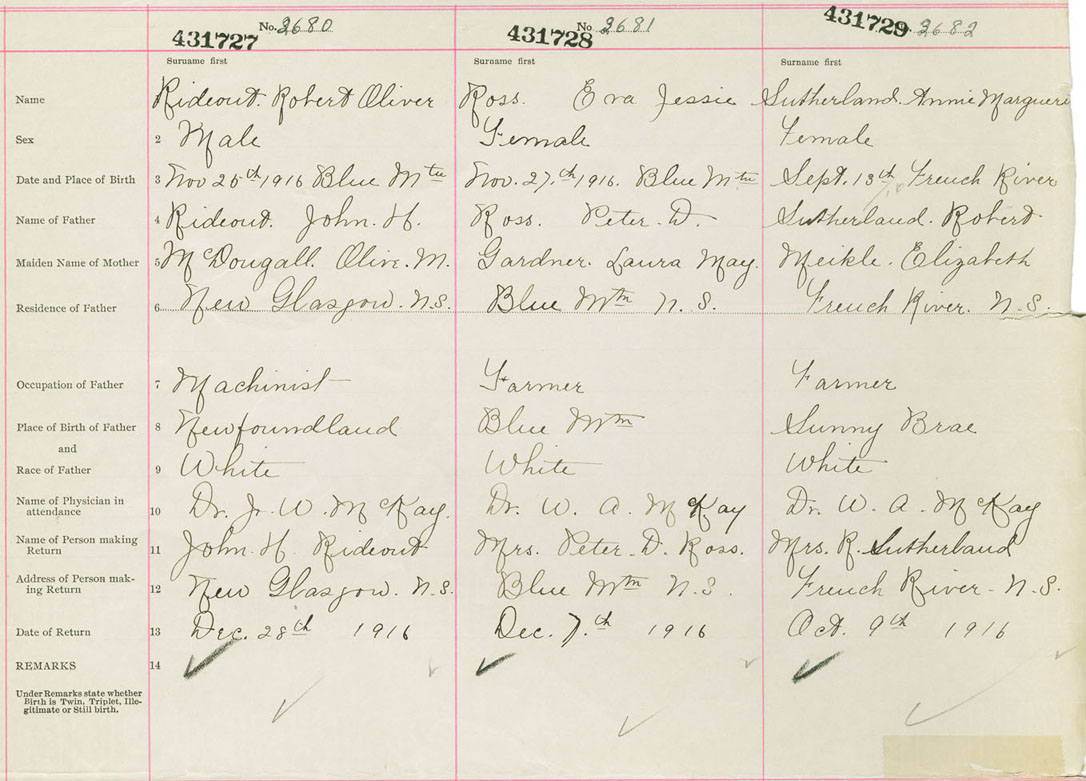 No. 2680 No 2681 2682
431727 431728 431729
Surname first Surname first Surname first
Name Rideout. Robert Oliver Ross. Eva Jessie Sutherland. Annie
Sex 2 Male Female Female
Date and Place of Birth 3 Nov 25th 1916 Blue Mtn Nov. 27.th 1916. Blue Mtn Sept. 13th French River
Name of Father 4 Rideout. John. H. Ross. Peter. D. Sutherland. Robert
Maiden Name of Mother 5 McDougall. Olive. M. Gardner. Laura May. Meikle. Elizabeth
Residence of Father 6 New Glasgow. N.S. Blue Mtn N.S. French River. N.S.
Occupation of Father 7 Machinist Farmer Farmer
Place of Birth of Father 8 Newfoundland Blue Mtn Sunny Brae
and
Race of Father 9 White White White
Name of Physician in
attendance 10 Dr. J. W. McKay. Dr. W. A. McKay Dr. W. A. McKay
Name of Person making
Return 11 John. H. Rideout Mrs. Peter. D. Ross. Mrs. R. Sutherland
Address of Person mak-
ing Return 12 New Glasgow. N.S. Blue Mtn N.S. French River. N.S.
Date of Return 13 Dec. 28th 1916 Dec. 7.th 1916 Oct. 9th 1916
REMARKS 14
Under Remarks state whether
Birth is Twin, Triplet, Ille-
gitimate or Still birth.